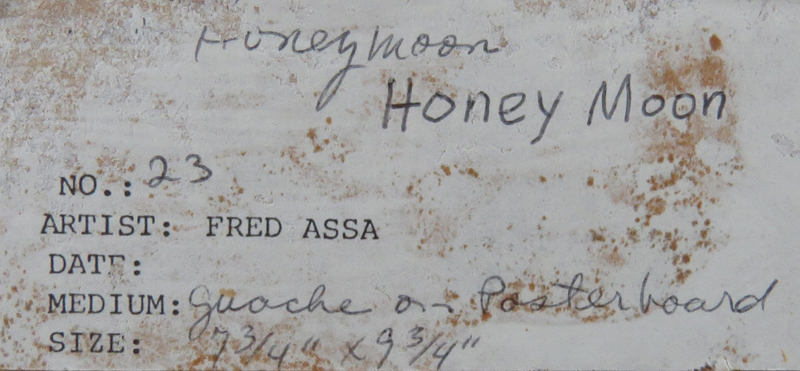 Honeymoon
Honey Moon
NO.: 23
ARTIST: FRED ASSA
DATE:
MEDIUM: guache on Posterboard
SIZE: 7 3/4" x 9 3/4"